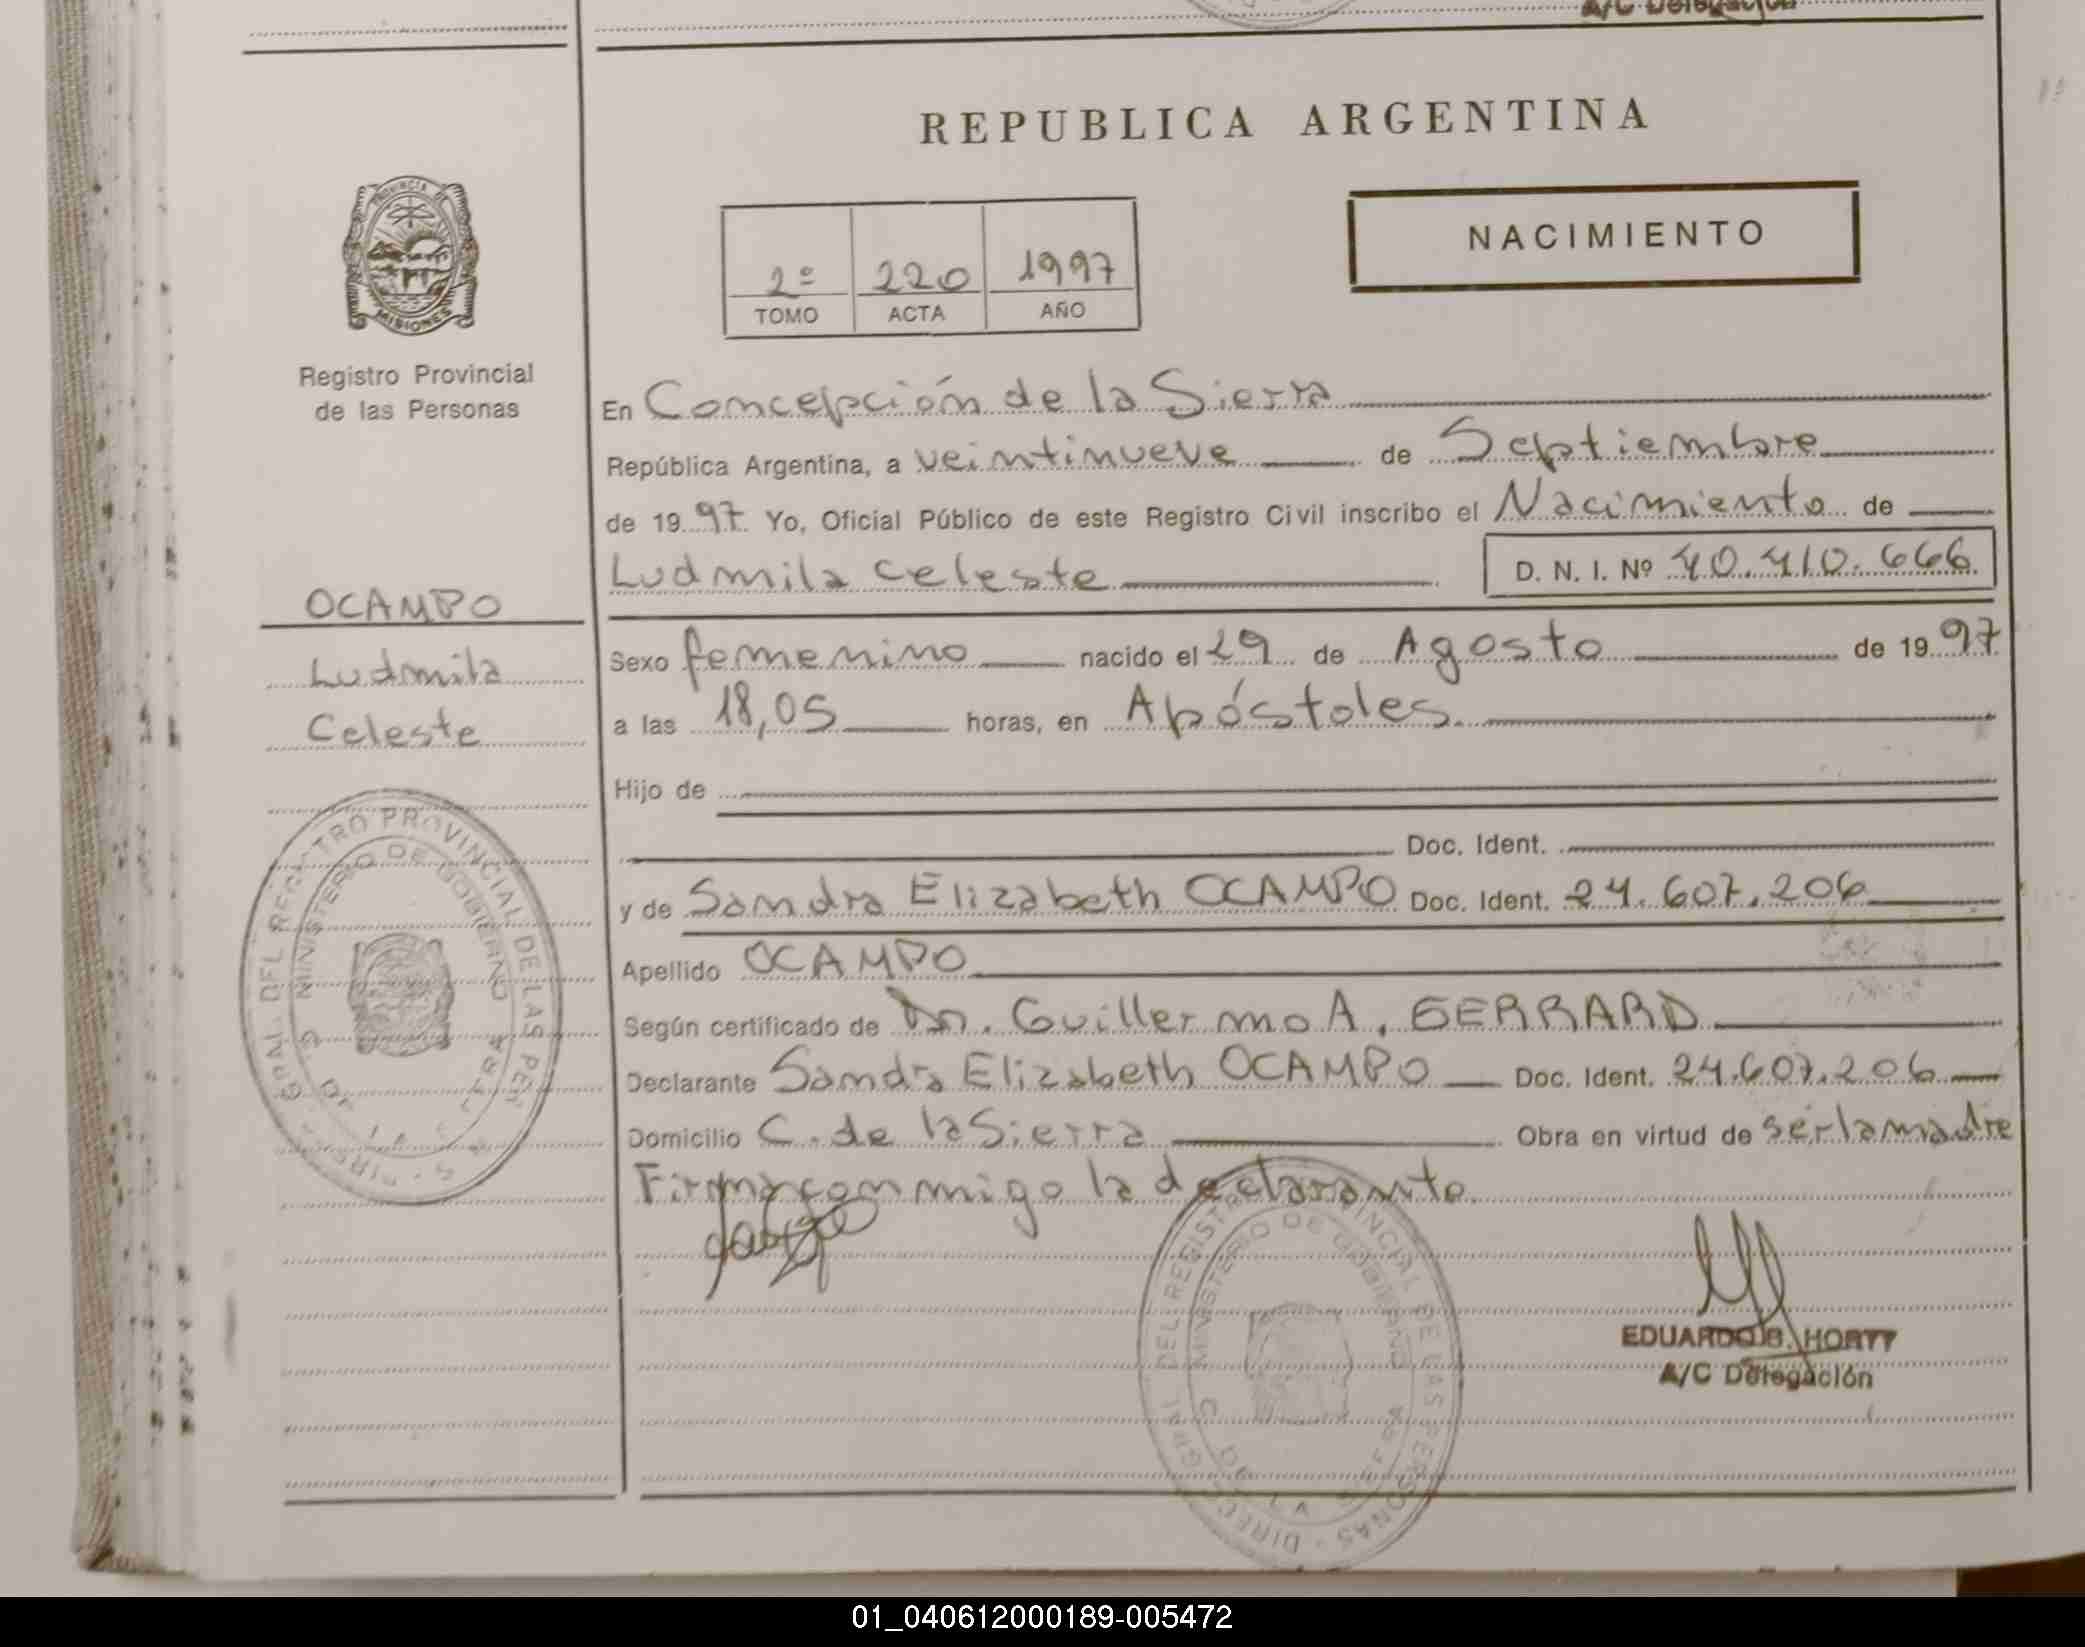 A/C Delegación
REPUBLICA ARGENTINA
PROVINCIA DE
MISIONES
NACIMIENTO
2º 220 1997
TOMO ACTA AÑO
Registro Provincial
de las Personas
En Concepción de la Sierra
República Argentina, a veintinueve de Septiembre
de 1997 Yo, Oficial Público de este Registro Civil inscribo el Nacimiento de
Ludmila Celeste D. N. I. Nº 40.410.666
OCAMPO
Ludmila
Celeste
Sexo femenino nacido el 29 de Agosto de 1997
a las 18,05 horas, en Apóstoles.
Hijo de
Doc. Ident.
y de Sandra Elizabeth OCAMPO Doc. Ident. 24.607.206
Apellido OCAMPO
Según certificado de Dr. Guillermo A. GERRARD
Declarante Sandra Elizabeth OCAMPO Doc. Ident. 24.607.206
Domicilio C. de la Sierra Obra en virtud de ser la madre
Firma conmigo la declarante.
GRAL. DEL REGISTRO PROVINCIAL DE LAS PER
MINISTERIO DE GOBIERNO
DIRECC. GRAL. DEL REGISTRO PROVINCIAL DE LAS PERSONAS
MINISTERIO DE GOBIERNO
C. DE LA SIERRA
EDUARDO B. HORTT
A/C Delegación
01_040612000189-005472